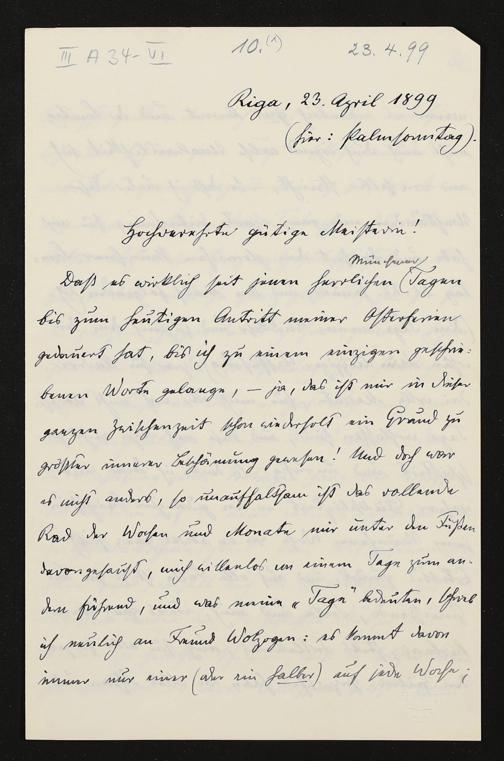 III A 34-VI 10.(1) 23.4.99
Riga, 23. April 1899
(hier: Palmsonntag).
Hochverehrte gütige Meisterin!
Daß es wirklich seit jenen herrlichen (Münchener) Tagen
bis zum heutigen Antritt meiner Osterferien
gedauert hat, bis ich zu einem einzigen geschrie-
benen Worte gelange, – ja, das ist mir in dieser
ganzen Zwischenzeit schon wiederholt ein Grund zu
größter innerer Beschämung gewesen! Und doch war
es nicht anders, so unaufhaltsam ist das rollende
Rad der Wochen und Monate mir unter den Füßen
davongesaust, mich willenlos von einem Tage zum an-
dern führend, und was meine „Tage" bedeuten, schrieb
ich neulich an Freund Wolzogen: es kommt davon
immer nur einer (oder ein halber) auf jede Woche;